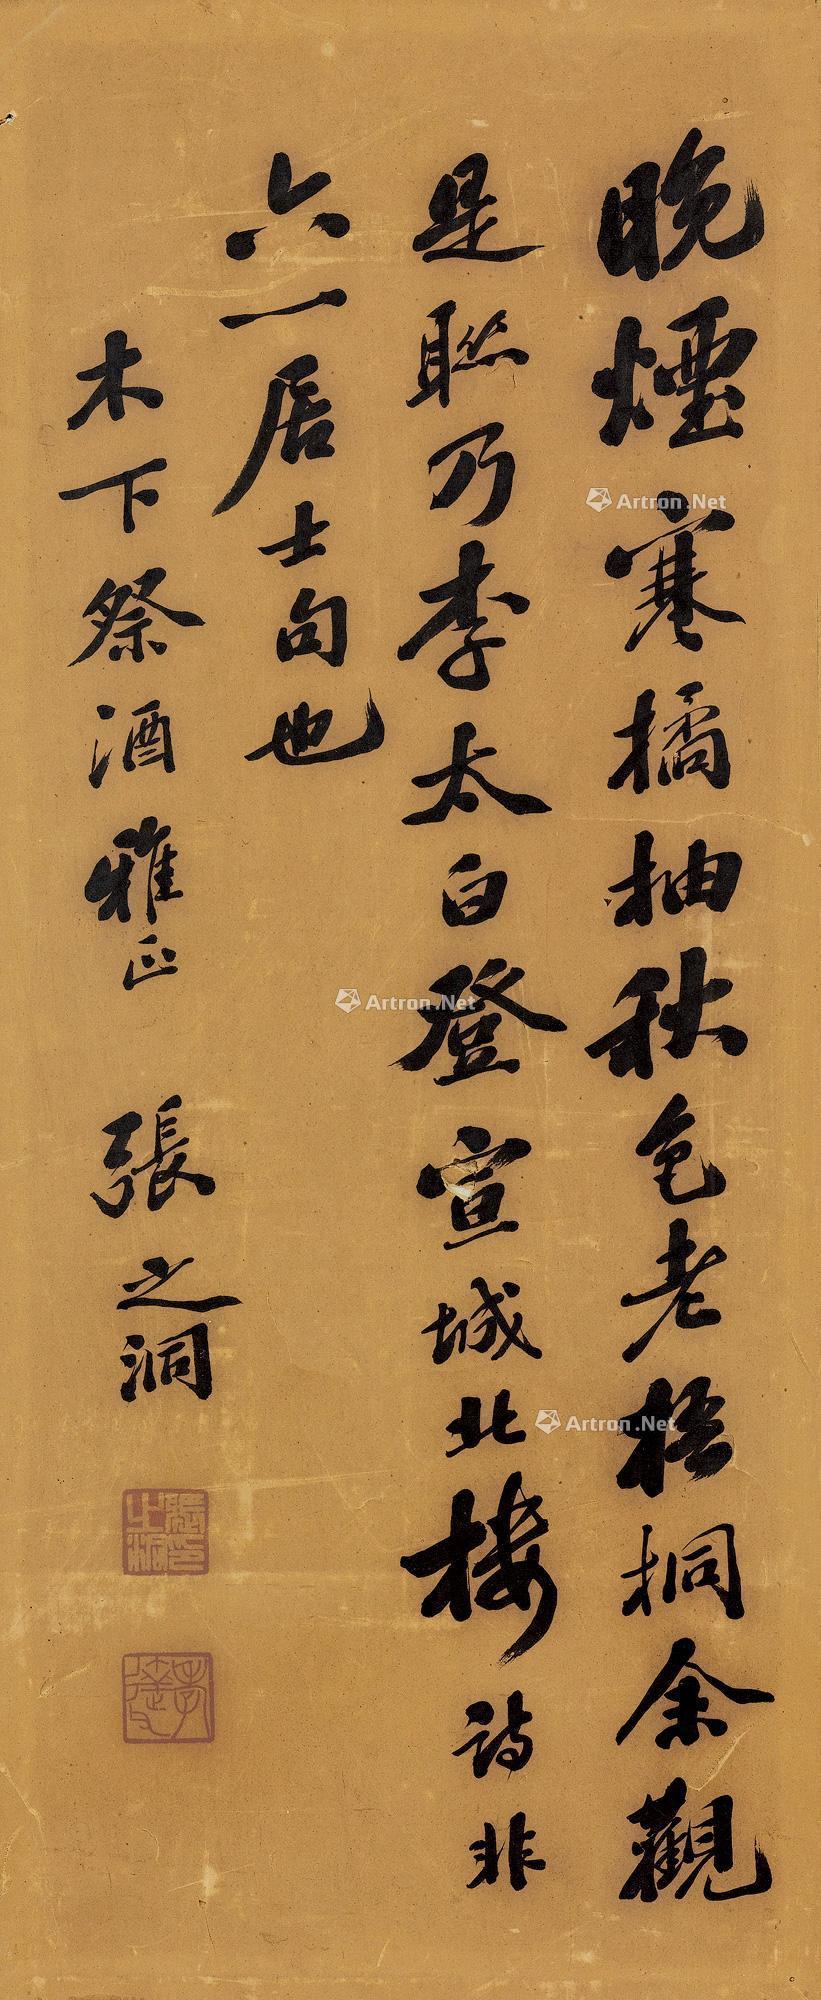 晚煙寒橘抽秋色老梧桐余觀
是聯乃李太白登宣城北樓詩非
六一居士句也
木下祭酒雅正
張之洞
張之洞印
孝達父
Artron.Net
Artron.Net
Artron.Net